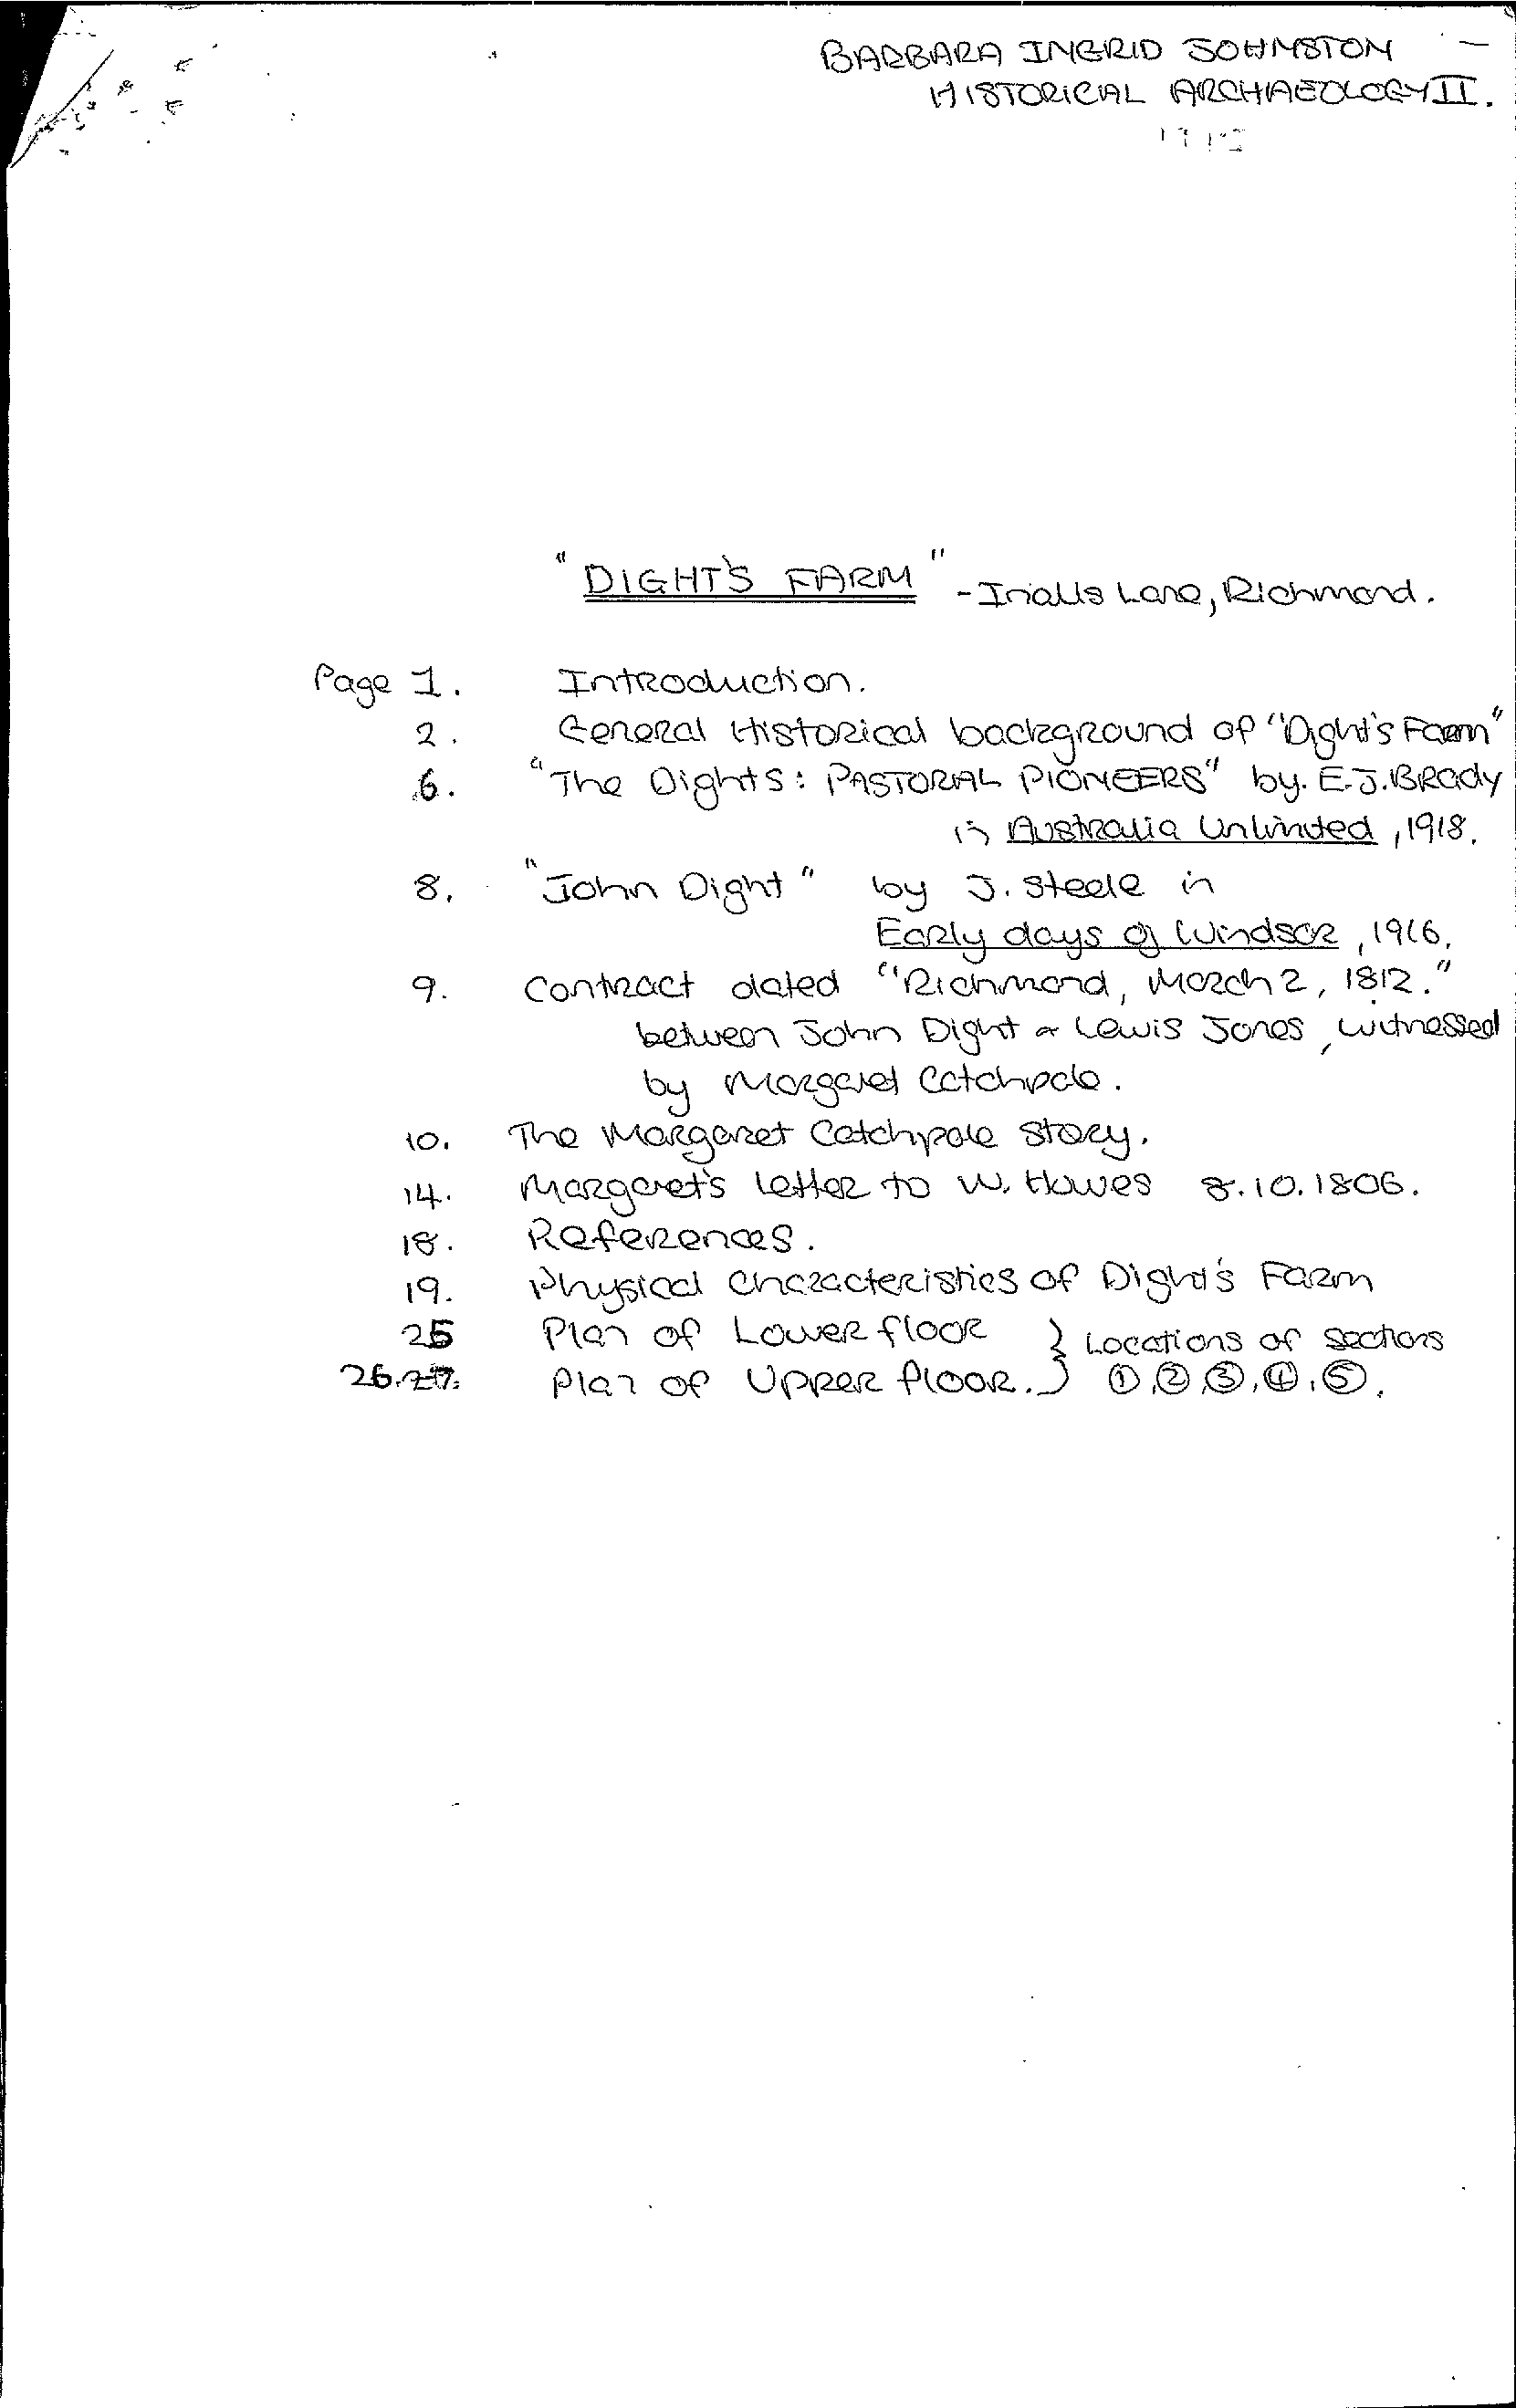 BARBARA INGRID JOHNSTON
HISTORICAL ARCHAEOLOGY II.
"DIGHT'S FARM" - Inalls Lane, Richmond.
Page 1. Introduction.
2. General Historical background of "Dight's Farm"
6. "The Dights: PASTORAL PIONEERS" by. E.J. Brady
in Australia Unlimited, 1918.
8. "John Dight" by J. Steele in
Early days of Windsor, 1916.
9. Contract dated "Richmond, March 2, 1812."
between John Dight & Lewis Jones, witnessed
by Margaret Catchpole.
10. The Margaret Catchpole Story.
14. Margaret's Letter to W. Howes 8.10.1806.
18. References.
19. Physical Characteristics of Dight's Farm
25 Plan of Lower floor } Locations of Sections
26.27. Plan of Upper floor. } ①,②,③,④,⑤.